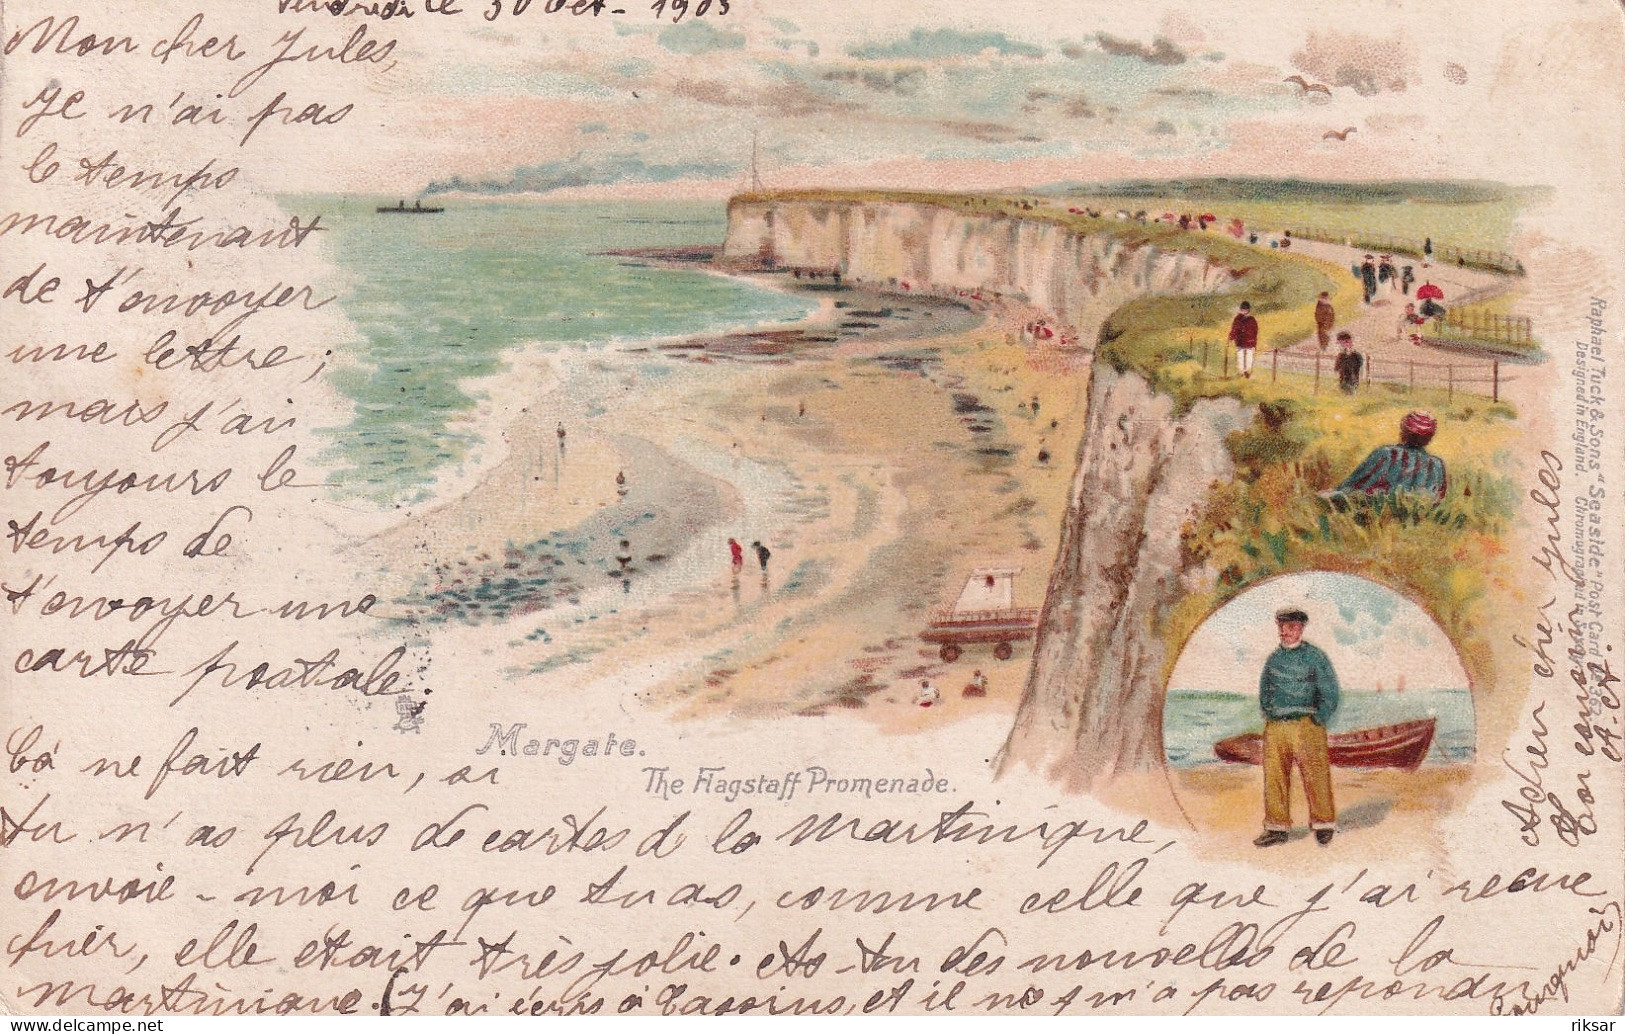 Vendredi le 30 Oct - 1903
Mon cher Jules,
Je n'ai pas
le temps
maintenant
de t'envoyer
une lettre ;
mais j'ai
toujours le
temps de
t'envoyer une
carte postale.
Margate.
The Flagstaff Promenade.
Ca ne fait rien, si
tu n'as plus de cartes de la Martinique,
envoie-moi ce que tu as, comme celle que j'ai reçue
hier, elle était très jolie. As-tu des nouvelles de la
Martinique. (J'ai écris à Cassius, et il ne m'a pas repondu
pourquoi)
Adieu cher Jules
Ton cousin
Raphael Tuck & Sons "Seaside" Post Card
Designed in England. Chromographed in
riksar
delcampe.net